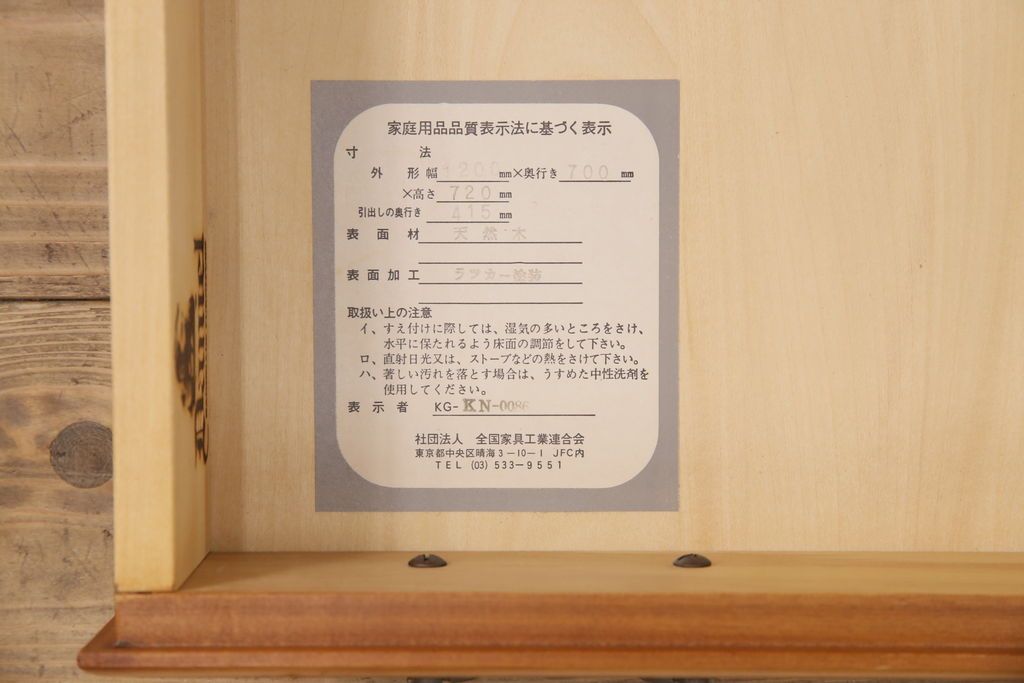 家庭用品品質表示法に基づく表示
寸法
外形幅 1200 mm×奥行き 700 mm
×高さ 720 mm
引出しの奥行き 415 mm
表面材 天然木
表面加工 ラッカー塗装
取扱い上の注意
イ、すえ付けに際しては、湿気の多いところをさけ、
水平に保たれるよう床面の調節をして下さい。
ロ、直射日光又は、ストーブなどの熱をさけて下さい。
ハ、著しい汚れを落とす場合は、うすめた中性洗剤を
使用してください。
表示者 KG-KN-0086
社団法人 全国家具工業連合会
東京都中央区晴海3-10-1 JFC内
TEL (03) 533-9551